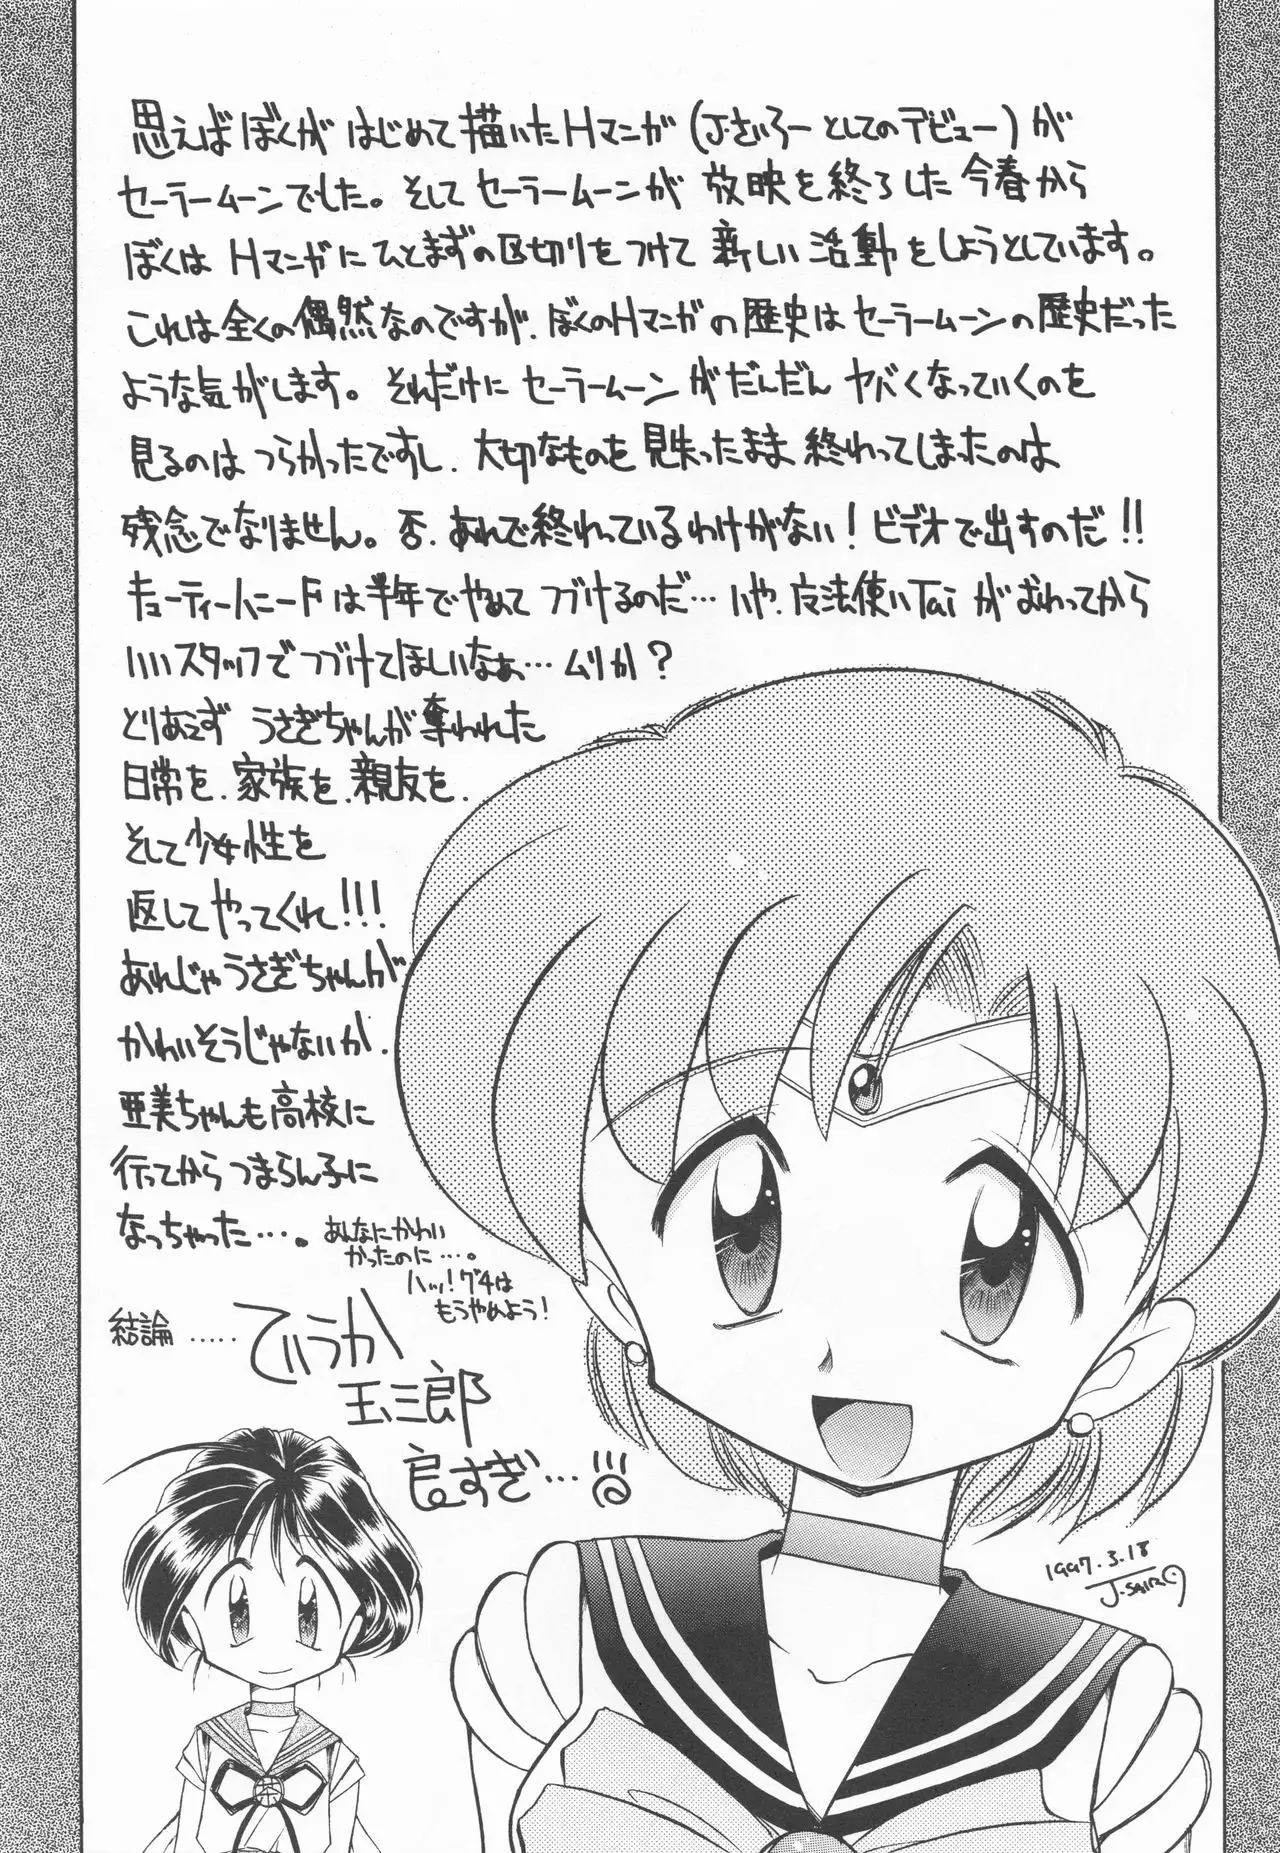 思えばぼくがはじめて描いたHマンガ(J・さいろーとしてのデビュー)が
セーラームーンでした。そしてセーラームーンが放映を終了した今春から
ぼくはHマンガにひとまずの区切りをつけて新しい活動をしようとしています。
これは全くの偶然なのですが、ぼくのHマンガの歴史はセーラームーンの歴史だった
ような気がします。それだけにセーラームーンがだんだんヤバくなっていくのを
見るのはつらかったですし、大切なものを見失ったまま終わってしまったのは
残念でなりません。否、あれで終わっているわけがない!ビデオで出すのだ!!
キューティーハニーFは半年でやめてつづけるのだ…いや、魔法使いTaiがおわってから
いいスタッフでつづけてほしいなぁ…ムリか?
とりあえずうさぎちゃんが奪われた
日常を、家族を、親友を、
そして少女性を
返してやってくれ!!!
あれじゃうさぎちゃんが
かわいそうじゃないか、
亜美ちゃんも高校に
行ってからつまらん子に
なっちゃった…。
あんなにかわい
かったのに…。
ハッ!グチは
もうやめよう!
結論……ていうか
玉三郎
良すぎ…!!!
1997.3.18
J・SAIRO